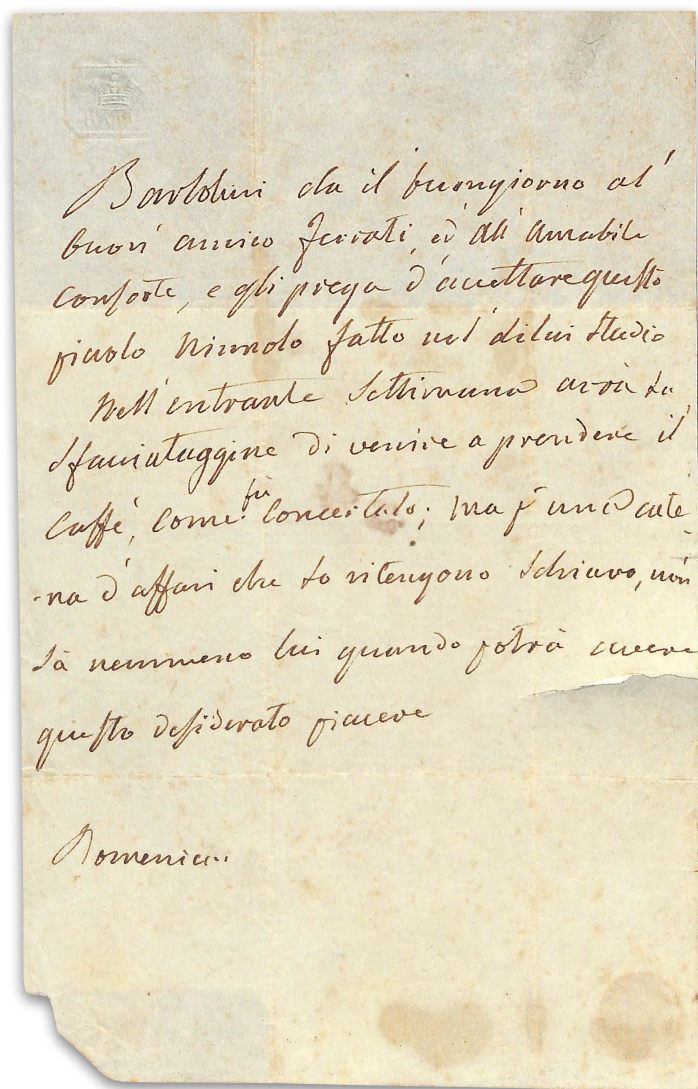 Bartolini da il buongiorno al'
buon' amico Ferrati, ed all' Amabile
Consorte, e gli prega d'accettare questo
piccolo Ninnolo fatto nel' di lui studio
Nell' entrante Settimana avrà la
sfacciataggine di venire a prendere il
Caffé, come fù Concertato; ma p una cate-
-na d'affari che lo ritengono schiavo, non
sà nemmeno lui quando potrà avere
questo desiderato piacere
Domenica..